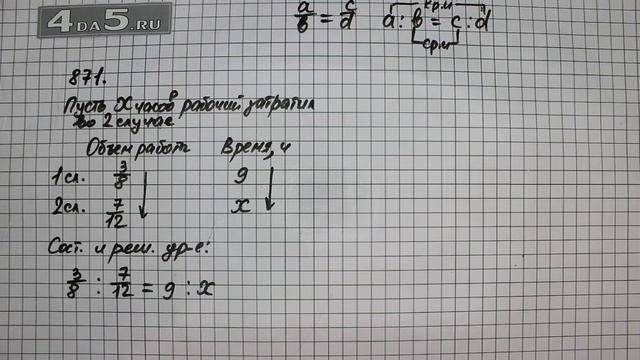 4DA5.RU
a/b = c/d a : b = c : d
кр.м
ср.м
871.
Пусть X часов рабочий затратил
во 2 случае
Объем работ Время, ч
1 сл. 3/8 9
2 сл. 7/12 x
Сост. и реш. ур-е:
3/8 : 7/12 = 9 : x